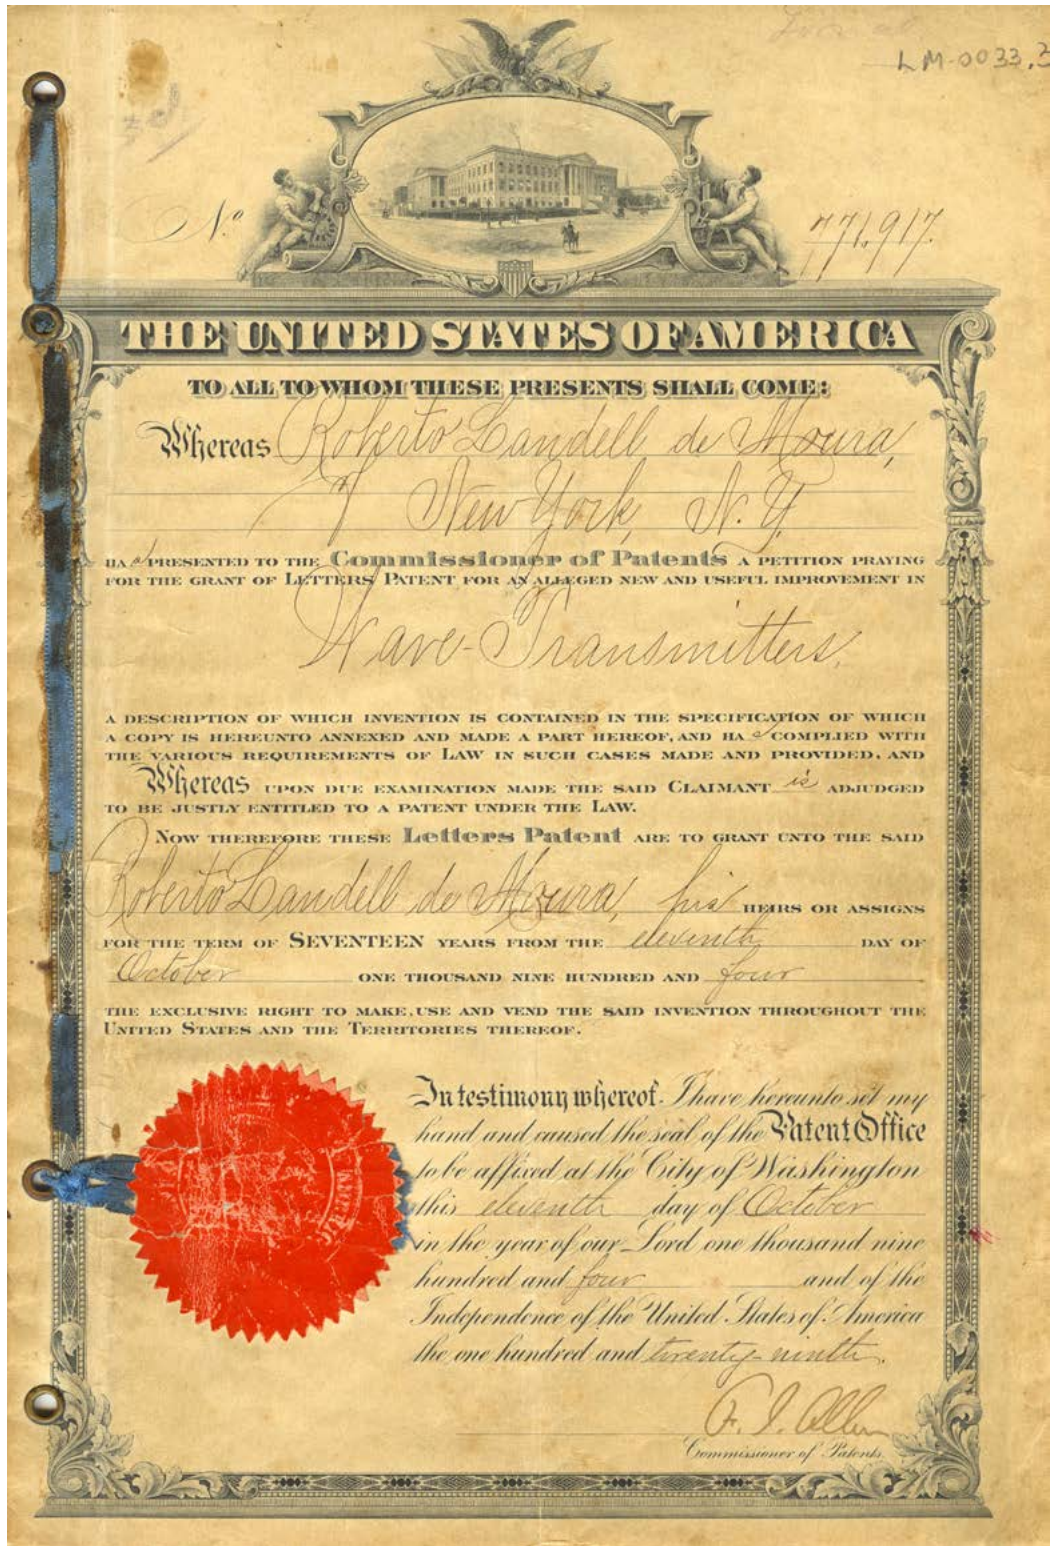 LM-0033.3
No 771,917.
THE UNITED STATES OF AMERICA
TO ALL TO WHOM THESE PRESENTS SHALL COME:
Whereas Roberto Landell de Moura,
of New York, N.Y.
HAs PRESENTED TO THE Commissioner of Patents A PETITION PRAYING
FOR THE GRANT OF LETTERS PATENT FOR AN ALLEGED NEW AND USEFUL IMPROVEMENT IN
Wave-Transmitters.
A DESCRIPTION OF WHICH INVENTION IS CONTAINED IN THE SPECIFICATION OF WHICH
A COPY IS HEREUNTO ANNEXED AND MADE A PART HEREOF, AND HAs COMPLIED WITH
THE VARIOUS REQUIREMENTS OF LAW IN SUCH CASES MADE AND PROVIDED, AND
Whereas UPON DUE EXAMINATION MADE THE SAID CLAIMANT is ADJUDGED
TO BE JUSTLY ENTITLED TO A PATENT UNDER THE LAW.
NOW THEREFORE THESE Letters Patent ARE TO GRANT UNTO THE SAID
Roberto Landell de Moura, his HEIRS OR ASSIGNS
FOR THE TERM OF SEVENTEEN YEARS FROM THE eleventh DAY OF
October ONE THOUSAND NINE HUNDRED AND four
THE EXCLUSIVE RIGHT TO MAKE, USE AND VEND THE SAID INVENTION THROUGHOUT THE
UNITED STATES AND THE TERRITORIES THEREOF.
In testimony whereof I have hereunto set my
hand and caused the seal of the Patent Office
to be affixed at the City of Washington
this eleventh day of October
in the year of our Lord one thousand nine
hundred and four and of the
Independence of the United States of America
the one hundred and twenty-ninth.
F. I. Allen
Commissioner of Patents.